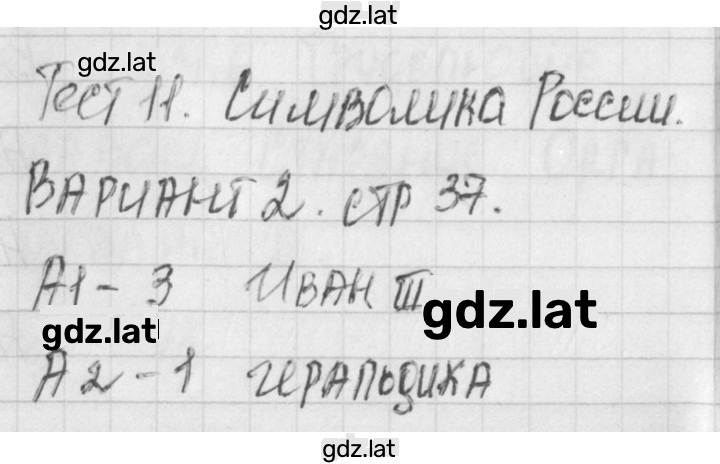 gdz.lat
gdz.lat
Тест 11. Символика России.
Вариант 2. стр 37.
А1 - 3 Иван III
gdz.lat
gdz.lat
А2 - 1 геральдика
gdz.lat